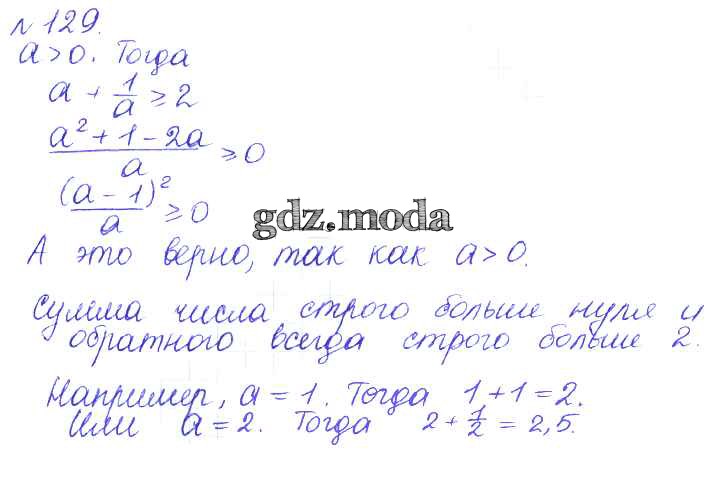 № 129.
a > 0. Тогда
a + 1/a ≥ 2
(a² + 1 - 2a)/a ≥ 0
(a - 1)²/a ≥ 0
gdz.moda
А это верно, так как a > 0.
Сумма числа строго больше нуля и
обратного всегда строго больше 2.
Например, a = 1. Тогда 1 + 1 = 2.
Или a = 2. Тогда 2 + 1/2 = 2,5.